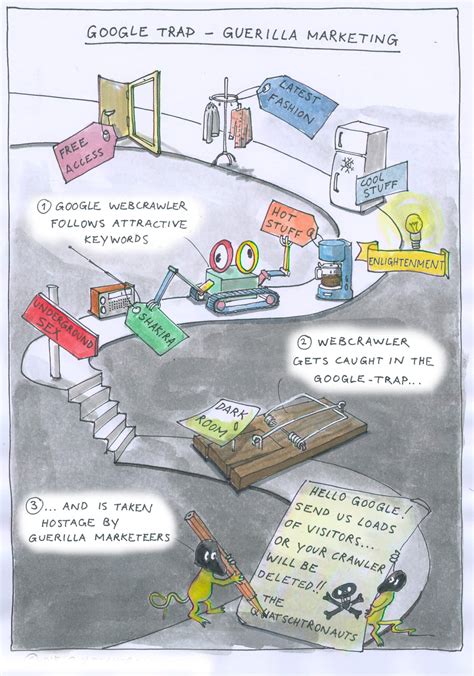 GOOGLE TRAP – GUERILLA MARKETING
FREE
ACCESS
LATEST
FASHION
COOL
STUFF
① GOOGLE WEBCRAWLER
FOLLOWS ATTRACTIVE
KEYWORDS
HOT
STUFF
ENLIGHTENMENT
UNDERGROUND
SEX
SHAKIRA
② WEBCRAWLER
GETS CAUGHT IN THE
GOOGLE-TRAP...
DARK
ROOM
③ ... AND IS TAKEN
HOSTAGE BY
GUERILLA MARKETEERS
HELLO GOOGLE!
SEND US LOADS
OF VISITORS...
OR YOUR CRAWLER
WILL BE
DELETED!!
THE
QUATSCHTRONAUTS